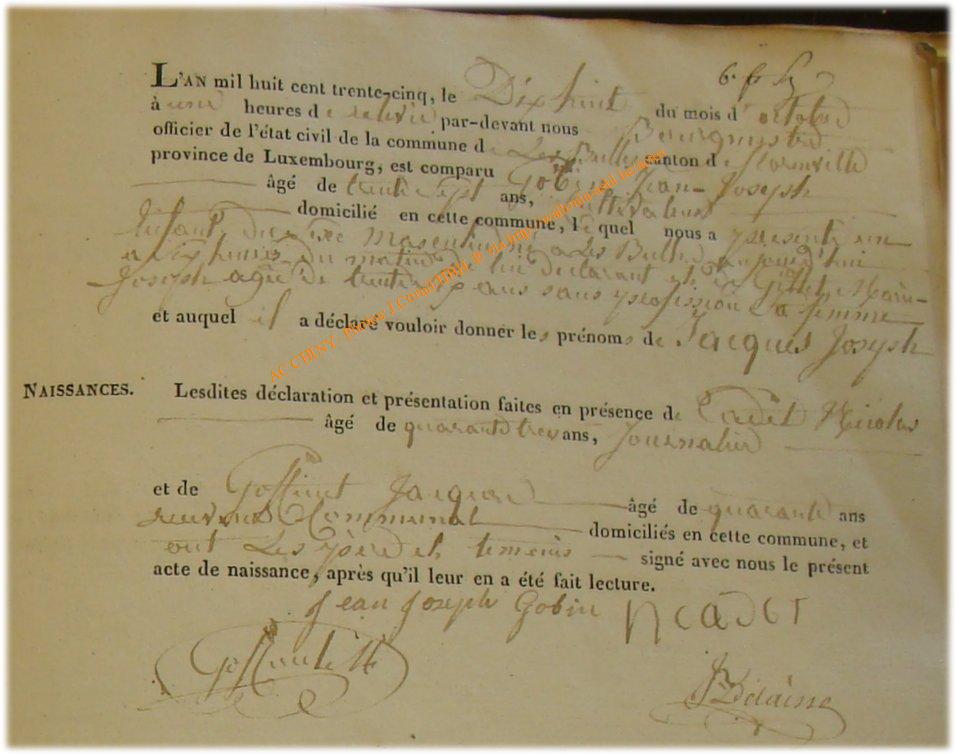 6. fr
L'AN mil huit cent trente-cinq, le Dix huit du mois d'octobre
à une heures de relevé par-devant nous Bourgmestre
officier de l'état civil de la commune de Les Bulles canton de florenville
province de Luxembourg, est comparu Gobin Jean-Joseph
âgé de trente Sept ans, cultivateur
domicilié en cette commune, lequel nous a présenté un
Enfant du Sexe masculin né a Les Bulles aujourd'hui
a Six heures du matin de lui déclarant et de Gillet Marie-
Joseph agée de trente ans sans profession Sa femme
et auquel il a déclaré vouloir donner les prénoms de Jacques Joseph
NAISSANCES. Lesdites déclaration et présentation faites en présence de Cadet Nicolas
âgé de quarante trois ans, Journalier
et de Goffinet Jacques âgé de quarante ans
receveur Communal domiciliés en cette commune, et
ont Les père et temoins signé avec nous le présent
acte de naissance, après qu'il leur en a été fait lecture.
Jean Joseph Gobin N CADET
Goffinet
Delaisse
AC CHINY